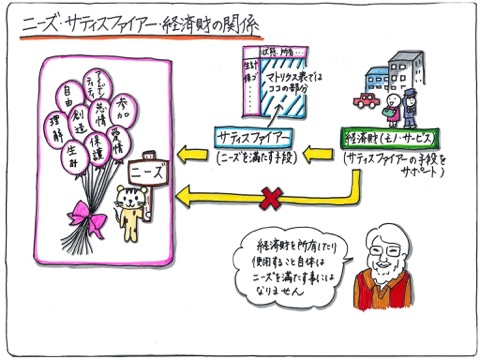 ニーズ・サティスファイアー・経済財の関係
状態 所有…
生計
保護
マトリクス表では
ココの部分
アイデンティティ
自由
怠惰
参加
創造
理解
愛情
保護
生計
ニーズ
サティスファイアー
(ニーズを満たす手段)
経済財(モノ・サービス)
(サティスファイアーの手段を
サポート)
経済財を所有したり
使用すること自体は
ニーズを満たす事には
なりません